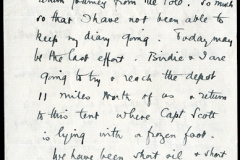 journey from the Pole. So much
so that I have not been able to
keep my diary going. Today may
be the last effort. Birdie & I are
going to try & reach the depot
11 miles North of us & return
to this tent where Capt Scott
is lying with a frozen foot.
We have been short oil & short